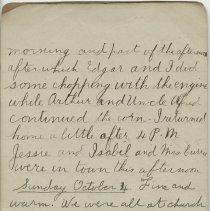 morning and part of the afternoon
after which Edgar and I did
some chopping with the engine
while Arthur and Uncle
continued the corn. I returned
home a little after 4 P.M
Jessie and Isabel and Mrs
were in town this afternoon
Sunday October 4 Fine and
warm. We were all at church